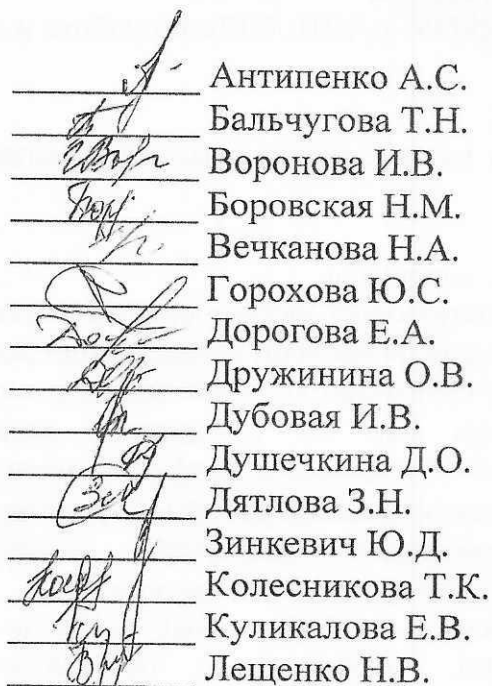 Антипенко А.С.
Бальчугова Т.Н.
Воронова И.В.
Боровская Н.М.
Вечканова Н.А.
Горохова Ю.С.
Дорогова Е.А.
Дружинина О.В.
Дубовая И.В.
Душечкина Д.О.
Дятлова З.Н.
Зинкевич Ю.Д.
Колесникова Т.К.
Куликалова Е.В.
Лещенко Н.В.